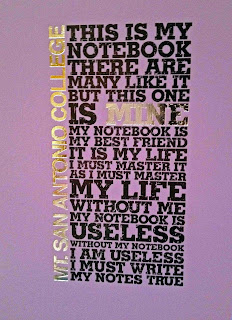 MT. SAN ANTONIO COLLEGE
THIS IS MY
NOTEBOOK
THERE ARE
MANY LIKE IT
BUT THIS ONE
IS MINE
MY NOTEBOOK IS
MY BEST FRIEND
IT IS MY LIFE
I MUST MASTER IT
AS I MUST MASTER
MY LIFE
WITHOUT ME
MY NOTEBOOK IS
USELESS
WITHOUT MY NOTEBOOK
I AM USELESS
I MUST WRITE
MY NOTES TRUE